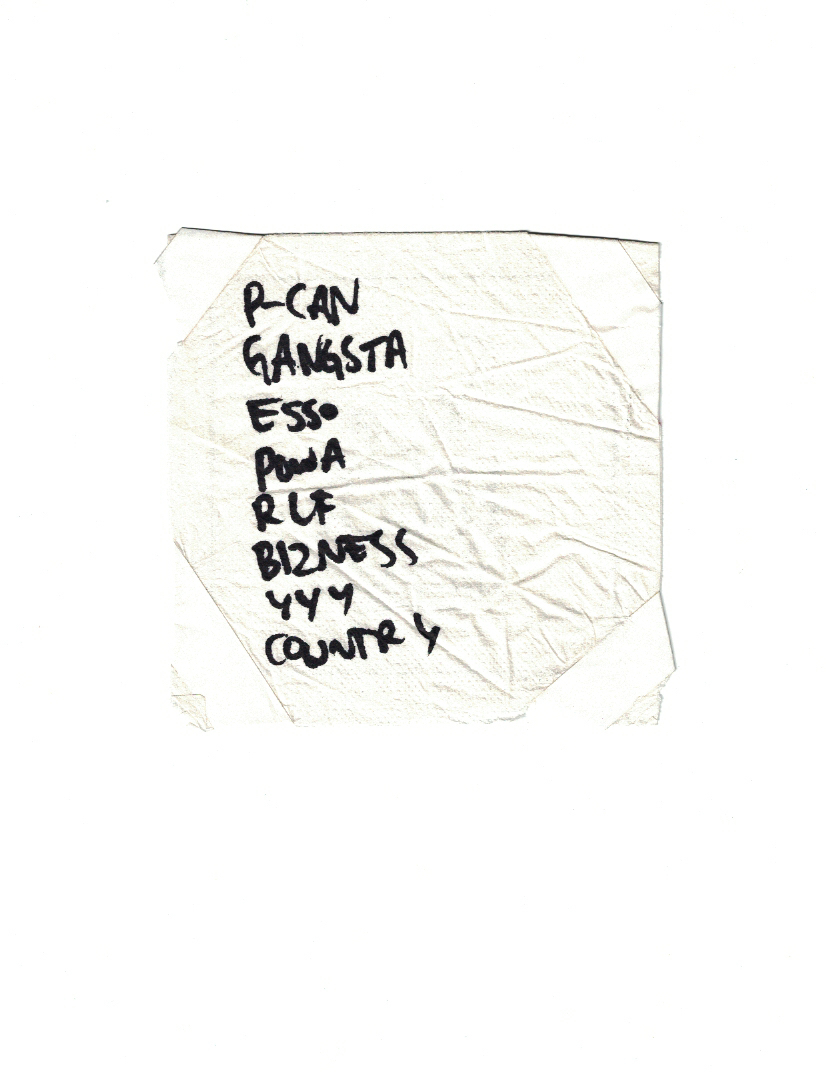 P-CAN
GANGSTA
ESSO
POWA
RLF
BIZNESS
YYY
COUNTRY